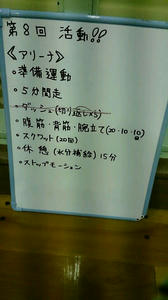 第8回 活動!!
《アリーナ》
○準備運動
○5分間走
○ダッシュ(切り返し×5)
○腹筋・背筋・腕立て(20・10・10)
○スクワット(20回)
○休憩(水分補給)15分
○ストップモーション